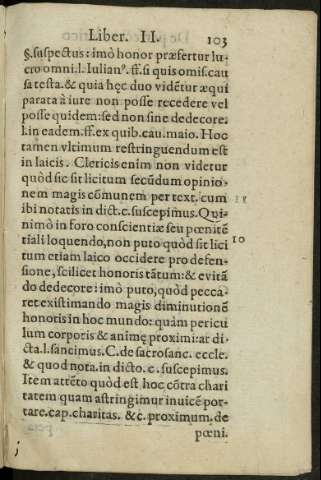 Liber. II. 103
§. suspectus: imò honor præfertur lu-
cro omni. l. Iulianꝰ. ff. si quis omis. cau
sa testa. & quia hęc duo vidẽtur æqui
parata à iure non posse recedere vel
posse quidem: sed non sine dedecore.
l. in eadem. ff. ex quib. cau. maio. Hoc
tamen vltimum restringuendum est
in laicis. Clericis enim non videtur
quòd sic sit licitum secũdum opinio-
nem magis cõmunem per text. cum
ibi notatis in dict. c. suscepimus. Qui-
nimò in foro conscientiæ seu pœnitẽ
tiali loquendo, non puto quòd sit lici
10
tum etiam laico occidere pro defen-
sione, scilicet honoris tãtum: & evitã
do dedecore: imò puto, quòd pecca-
ret existimando magis diminutionẽ
honoris in hoc mundo: quàm pericu
lum corporis & animę proximi: ar di-
cta. l. sancimus. C. de sacrosanc. eccle.
& quod nota. in dicto. c. suscepimus.
Item attẽto quòd est hoc cõtra chari
tatem quam astringimur inuicẽ por-
tare. cap. charitas. & c. proximum. de
pœni.